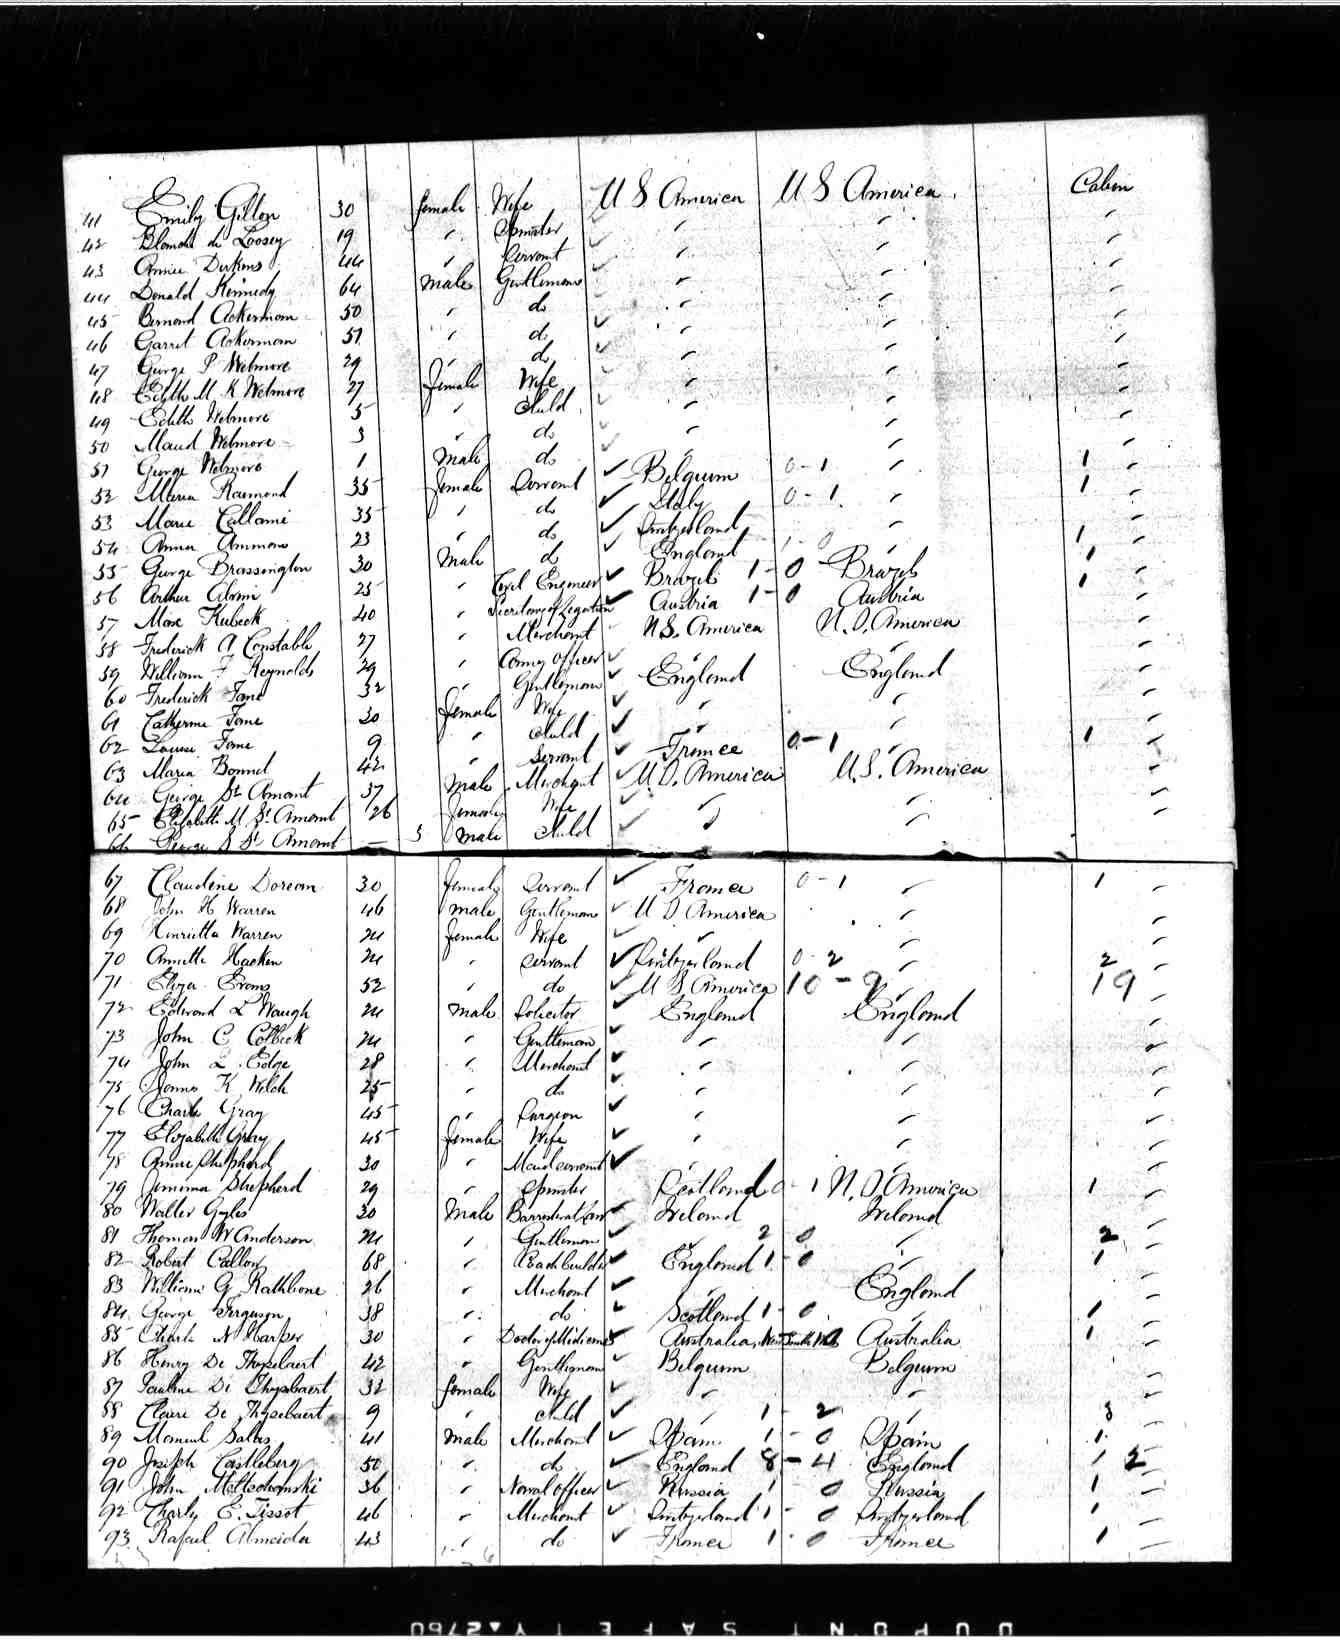 41 Emily Gillon 30 female Wife U S America U S America Cabin
42 Blanche de Loosey 19 " Spinster " "
43 Annie Dirkens 44 " Servant " "
44 Donald Kennedy 64 male Gentleman " "
45 Bernard Ackerman 50 " do " "
46 Garret Ackerman 51 " do " "
47 George P Wetmore 29 " do " "
48 Edith M K Wetmore 27 female Wife " "
49 Edith Wetmore 5 " Child " "
50 Maud Wetmore 3 " do " "
51 George Wetmore 1 male do " "
52 Maria Raemond 35 female Servant Belgium 0-1 " 1
53 Marie Callami 35 " do Italy 0-1 " 1
54 Anna Ammons 23 " do Switzerland "
55 George Brassington 30 male do England 1-0 " 1
56 Arthur 25 " Civil Engineer Brazils 1-0 Brazils 1
57 Max Kubeck 40 " Secretary of Legation Austria 1-0 Austria 1
58 Frederick A Constable 27 " Merchant U S. America U. S. America
59 William F Reynolds 29 " Army officer "
60 Frederick Fane 32 " Gentleman England England
61 Catherine Fane 30 female Wife " "
62 Louisa Fane 9 " Child " "
63 Maria Bonnet 42 " Servant France 0-1 " 1
64 George St Amant 37 male Merchant U. S. America U.S. America
65 Elizabeth M St Amant 26 female Wife " "
66 George S St Amant — 3 male Child " "
67 Claudine Doream 30 female Servant France 0-1 " 1
68 John H Warren 46 male Gentleman U S America "
69 Henrietta Warren 24 female Wife " "
70 Annette Hacken 24 " Servant Switzerland 0 2 " 2
71 Eliza Evans 52 " do U S America 10-9 " 19
72 Edward L Waugh 24 male Solicitor England England
73 John C Colbeck 24 " Gentleman " "
74 John L. Edge 28 " Merchant " "
75 James K Welch 25 " do " "
76 Charles Gray 45 " Surgeon " "
77 Elizabeth Gray 45 female Wife " "
78 Annie Shepherd 30 " Maidservant " "
79 Jemima Shepherd 29 " Spinster Scotland 0-1 U. S America 1
80 Walter Gyles 30 Male Barrister at Law Ireland Ireland
81 Thomas W Anderson 24 " Gentleman " 2 0 " 2
82 Robert Callow 68 " Coachbuilder England 1-0 " 1
83 William G Rathbone 26 " Merchant " England
84 George Ferguson 38 " do Scotland 1-0 " 1
85 Charles N Harper 30 " Doctor of Medicine Australia, New South Wales Australia 1
86 Henry De Thysebaert 42 " Gentleman Belgium Belgium
87 Pauline De Thysebaert 32 female Wife " "
88 Claire De Thysebaert 9 " Child " 1-2 " 3
89 Manuel Salas 41 male Merchant Spain 1-0 Spain 1
90 Joseph Castleberg 50 " do England 8-4 England 12
91 John 36 " Naval officer Russia 1 0 Russia 1
92 Charles E. Tissot 46 " Merchant Switzerland 1-0 Switzerland 1
93 Rafael Almeida 43 " do France 1 0 France 1
DUPONT SAFETY